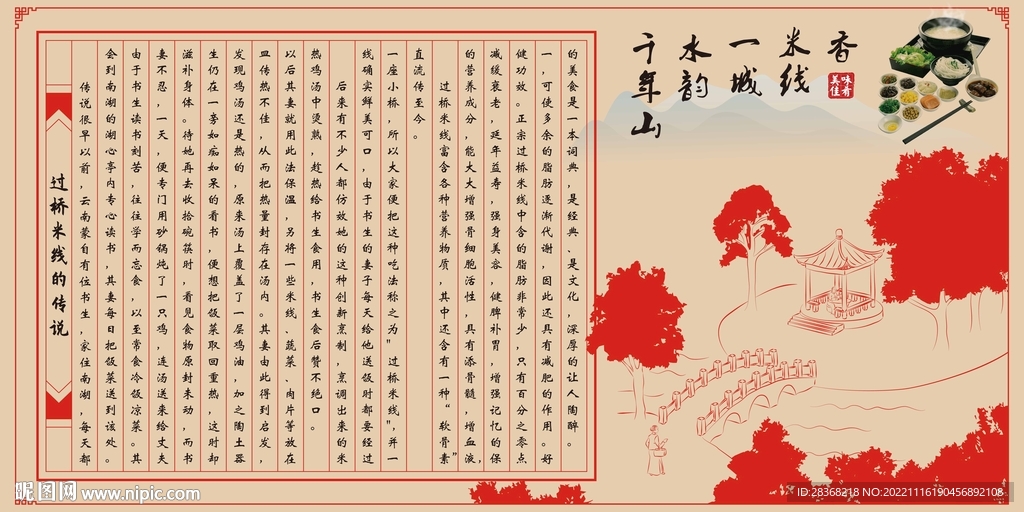 过桥米线的传说
传说很早以前,云南蒙自有位书生,家住南湖,每天都
会到南湖的湖心亭内专心读书,其妻每日把饭菜送到该处。
由于书生读书刻苦,往往学而忘食,以至常食冷饭凉菜。其
妻不忍,一天,便专门用砂锅炖了一只鸡,连汤送来给丈夫
滋补身体。待她再去收拾碗筷时,看见食物原封未动,而书
生仍在一旁如痴如呆的看书,便想把饭菜取回重热,这时却
发现鸡汤还是热的,原来汤上覆盖了一层鸡油,加之陶土器
皿传热不佳,从而把热量封存在汤内。其妻由此得到启发,
以后其妻就用此法保温,另将一些米线、蔬菜、肉片等放在
热鸡汤中烫熟,趁热给书生食用,书生食后赞不绝口。
后来有不少人都仿效她的这种创新烹制,烹调出来的米
线确实鲜美可口,由于书生的妻子每天给他送饭时都要经过
一座小桥,所以大家便把这种吃法称之为"过桥米线",并一
直流传至今。
过桥米线富含各种营养物质,其中还含有一种"软骨素"
的营养成分,能大大增强骨细胞活性,具有添骨髓,增血液,
减缓衰老,延年益寿,强身美容,健脾补胃,增强记忆的保
健功效。正宗过桥米线中含的脂肪非常少,只有百分之零点
一,可使多余的脂肪逐渐代谢,因此还具有减肥的作用。好
的美食是一本词典,是经典、是文化,深厚的让人陶醉。
千年山
水韵
一城
米线
香
美味佳肴
昵图网 www.nipic.com
ID:28368218 NO:20221116190456892108